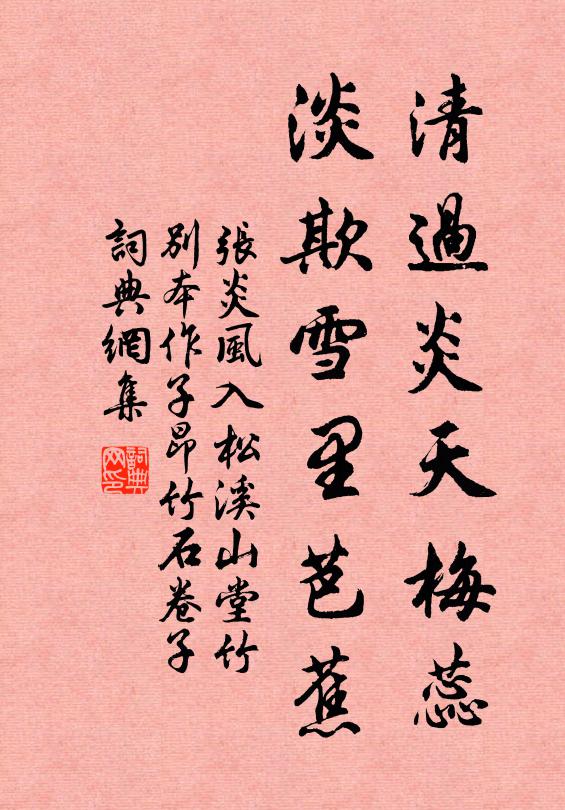 清過炎天梅蕊
淡欺雪里芭蕉
張炎風入松溪山堂竹
別本作子昂竹石卷子
詞典網集
詞典網印